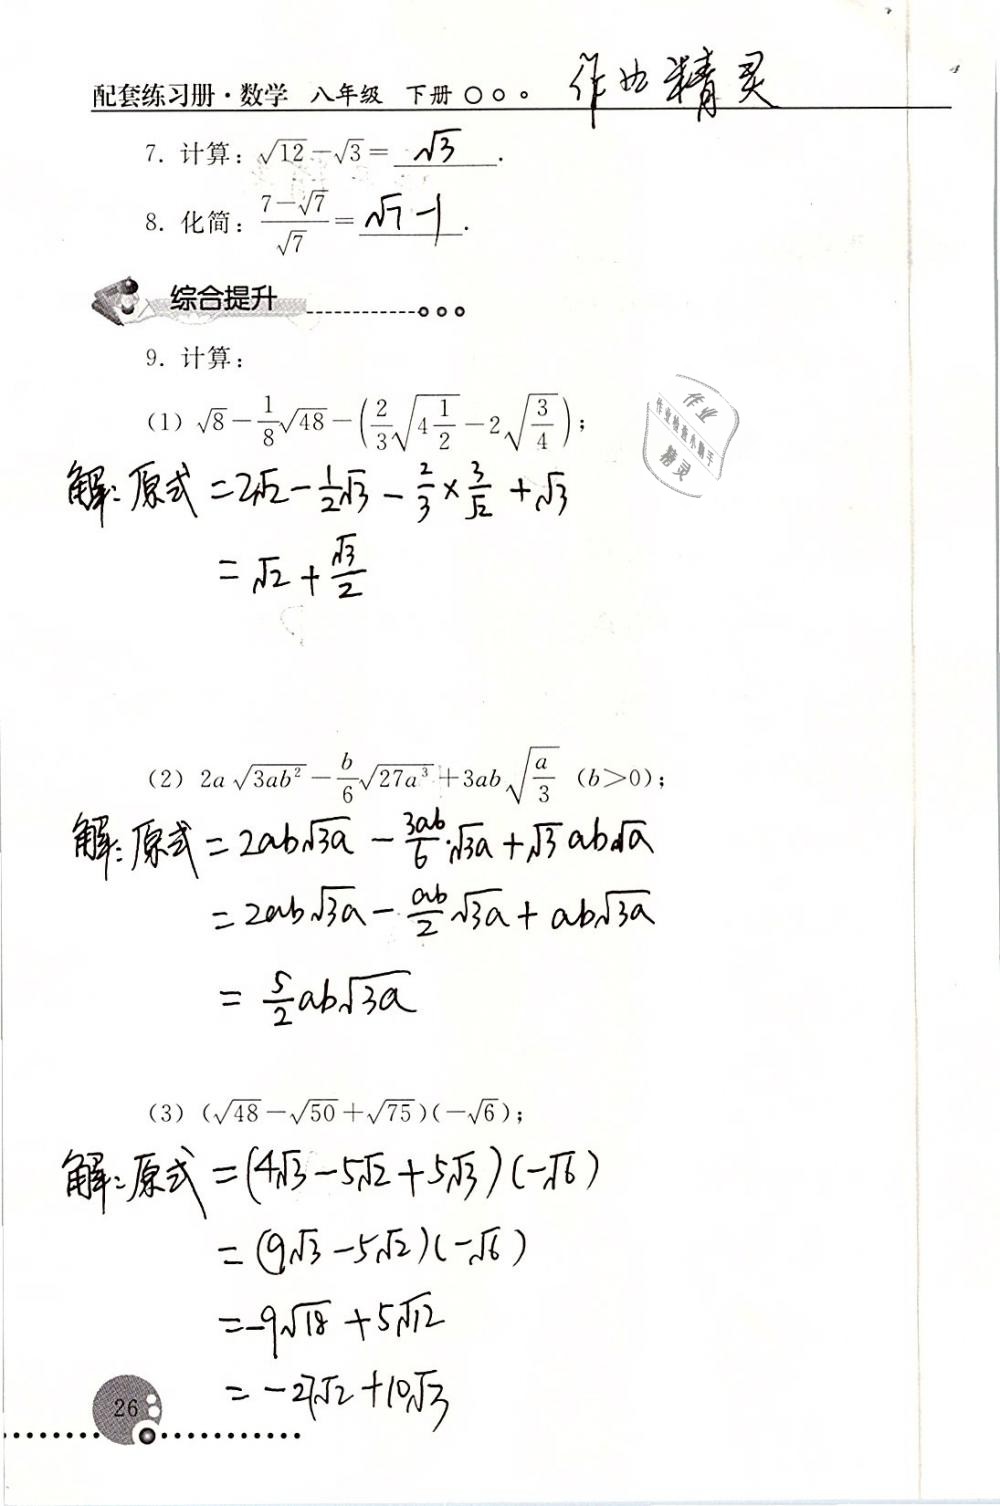 配套练习册·数学 八年级 下册 作业精灵
7. 计算：√12－√3＝√3.
8. 化简：(7－√7)/√7＝√7－1.
综合提升
9. 计算：
(1) √8－1/8√48－(2/3√(4 1/2)－2√(3/4))；
解：原式＝2√2－1/2√3－2/3×3/√2＋√3
＝√2＋√3/2
作业
作业检查小助手
精灵
(2) 2a√(3ab²)－b/6√(27a³)＋3ab√(a/3) (b＞0)；
解：原式＝2ab√3a－3ab/6·√3a＋√3ab√a
＝2ab√3a－ab/2√3a＋ab√3a
＝5/2ab√3a
(3) (√48－√50＋√75)(－√6)；
解：原式＝(4√3－5√2＋5√3)(－√6)
＝(9√3－5√2)(－√6)
＝－9√18＋5√12
＝－27√2＋10√3
26